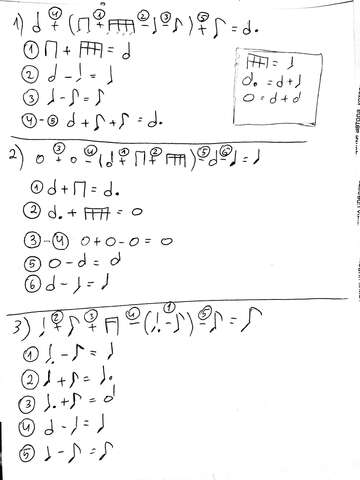 ④ ① ② ③ ⑤
1) 𝅗𝅥 + (♫ + ♬ - ♩ - ♪) + ♪ = 𝅗𝅥.
① ♫ + ♬ = 𝅗𝅥
② 𝅗𝅥 - ♩ = ♩
③ ♩ - ♪ = ♪
④-⑤ 𝅗𝅥 + ♪ + ♪ = 𝅗𝅥.
♬ = ♩
𝅗𝅥. = 𝅗𝅥 + ♩
𝅝 = 𝅗𝅥 + 𝅗𝅥
③ ④ ① ② ⑤ ⑥
2) 𝅝 + 𝅝 - (𝅗𝅥 + ♫ + ♬) - 𝅗𝅥 - ♩ = ♩
① 𝅗𝅥 + ♫ = 𝅗𝅥.
② 𝅗𝅥. + ♬ = 𝅝
③-④ 𝅝 + 𝅝 - 𝅝 = 𝅝
⑤ 𝅝 - 𝅗𝅥 = 𝅗𝅥
⑥ 𝅗𝅥 - ♩ = ♩
② ③ ④ ① ⑤
3) ♩ + ♪ + ♫ - (♩. - ♪) - ♪ = ♪
① ♩. - ♪ = ♩
② ♩ + ♪ = ♩.
③ ♩. + ♪ = 𝅗𝅥
④ 𝅗𝅥 - ♩ = ♩
⑤ ♩ - ♪ = ♪